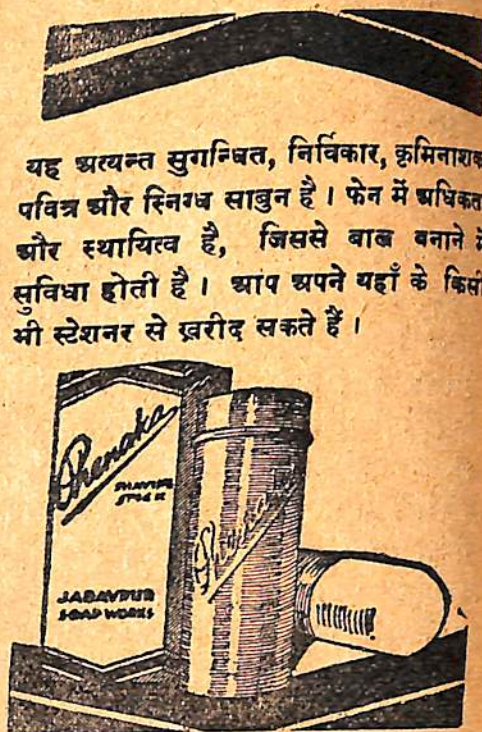 यह अत्यन्त सुगन्धित, निर्विकार, कृमिनाशक
पवित्र और स्निग्ध साबुन है । फेन में अधिकत
और स्थायित्व है, जिससे बाल बनाने में
सुविधा होती है । आप अपने यहाँ के किसी
भी स्टेशनर से ख़रीद सकते हैं ।
Phenaka
SHAVING
STICK
JADAVPUR
SOAP WORKS
Phenaka